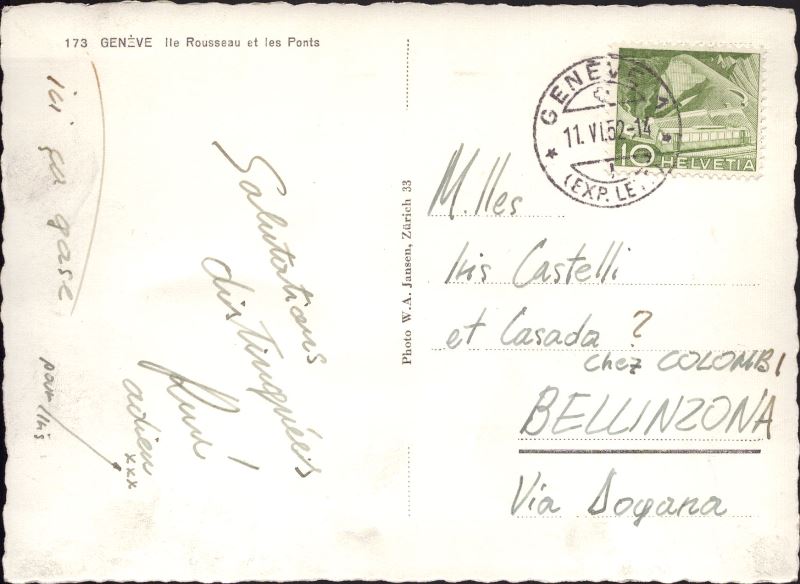 173 GENÈVE Ile Rousseau et les Ponts
ici ça gase
Salutations
distinguées
adieu
xxx
par Iris
Photo W. A. Jansen, Zürich 33
GENÈVE 1
11. VI. 52-14
(EXP. LET
10 HELVETIA
M.lles
Iris Castelli
et Casada ?
chez COLOMBI
BELLINZONA
Via Dogana